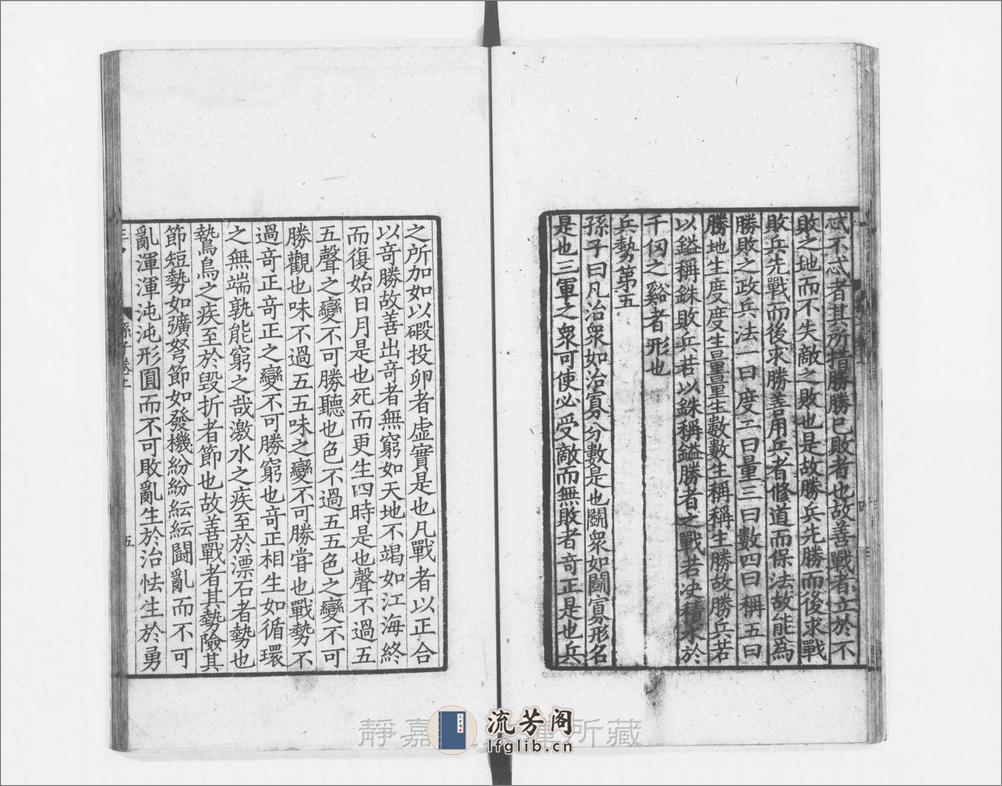 忒不忒者其所措勝勝已敗者也故善戰者立於不
敗之地而不失敵之敗也是故勝兵先勝而後求戰
敗兵先戰而後求勝善用兵者修道而保法故能為
勝敗之政兵法一曰度二曰量三曰數四曰稱五曰
勝地生度度生量量生數數生稱稱生勝故勝兵若
以鎰稱銖敗兵若以銖稱鎰勝者之戰若决積水於
千仞之谿者形也
兵勢第五
孫子曰凡治衆如治寡分數是也鬬衆如鬬寡形名
是也三軍之衆可使必受敵而無敗者竒正是也兵
之所加如以碬投卵者虚實是也凡戰者以正合
以竒勝故善出竒者無窮如天地不竭如江海終
而復始日月是也死而更生四時是也聲不過五
五聲之變不可勝聽也色不過五五色之變不可
勝觀也味不過五五味之變不可勝嘗也戰勢不
過竒正竒正之變不可勝窮也竒正相生如循環
之無端孰能窮之哉激水之疾至於漂石者勢也
鷙鳥之疾至於毀折者節也故善戰者其勢險其
節短勢如彍弩節如發機紛紛紜紜鬬亂而不可
亂渾渾沌沌形圓而不可敗亂生於治怯生於勇
五
靜嘉
所藏
流芳阁
lfglib.cn